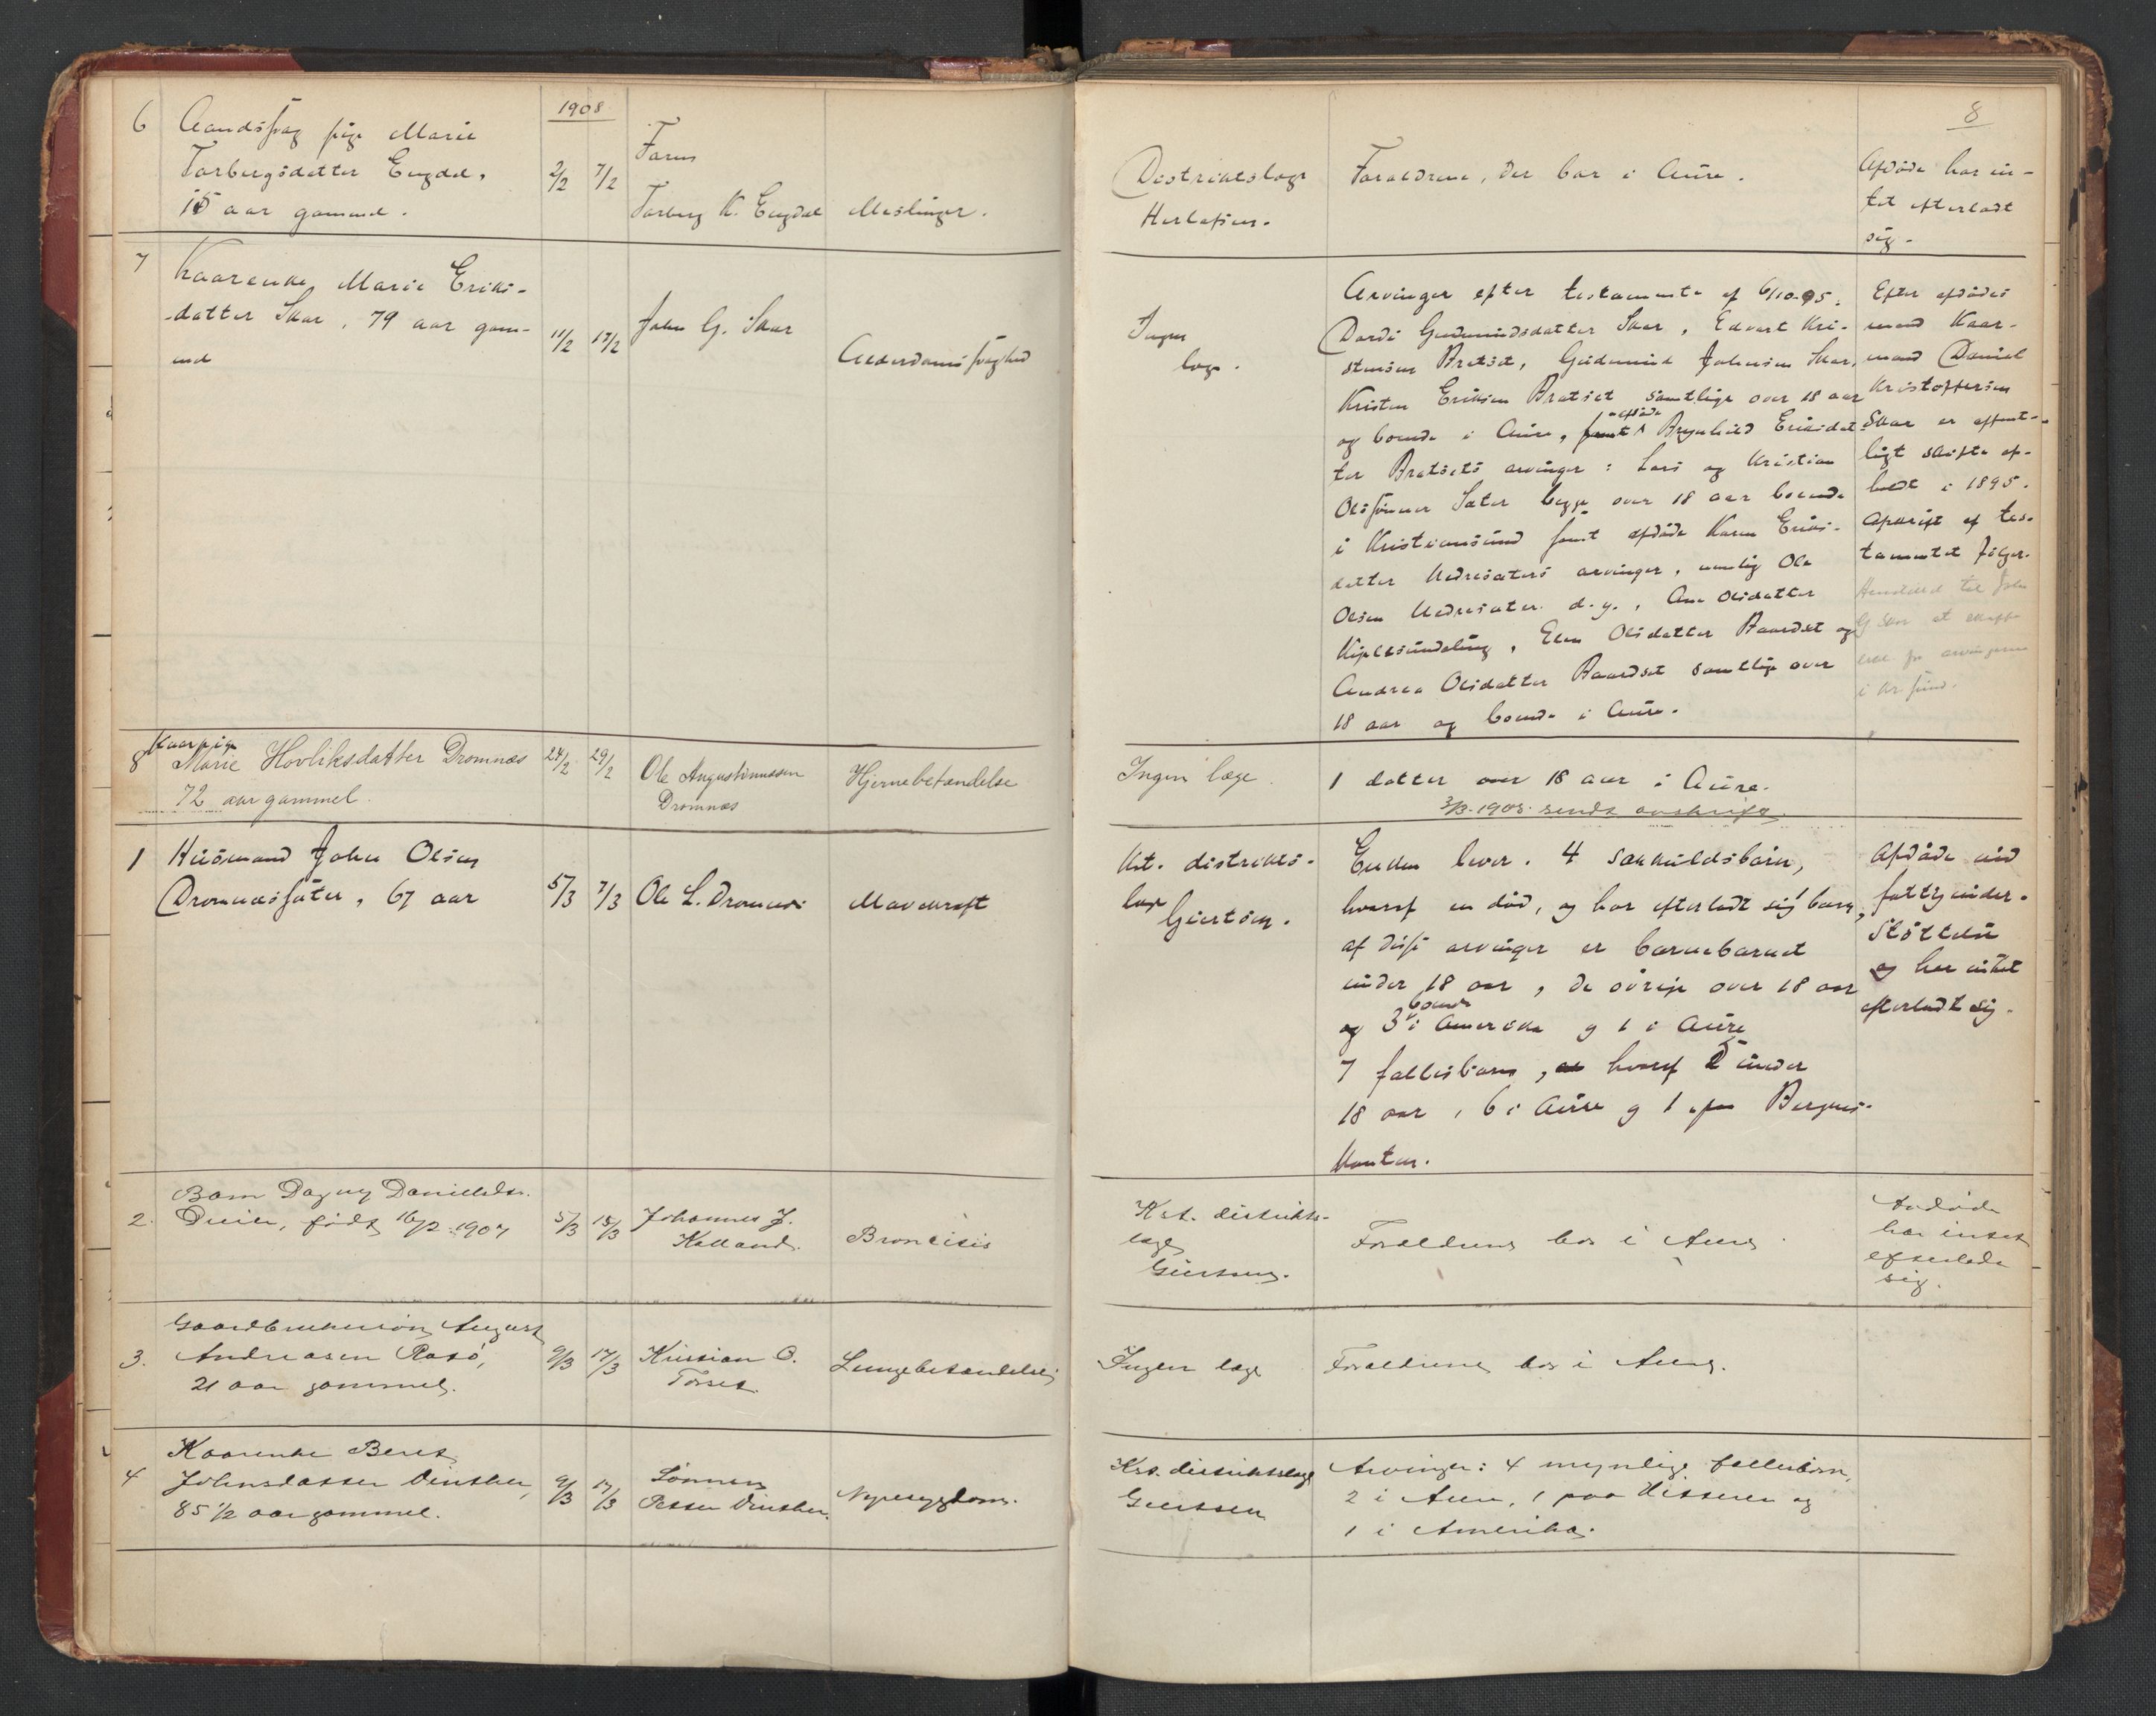 1908
8
6 Aandssvag pige Marie
Torbergsdatter Engdal,
15 aar gammel.
2/2 7/2
Faren
Torberg K. Engdal
Meslinger.
Distriktslæge
Herlofsen.
Forældrene, der bor i Aure.
Afdøde har in-
tet efterladt
sig.
7 Kaarenke Marie Eriks-
datter Skar, 79 aar gam-
mel
11/2 17/2
John G. Skar
Alderdomssvaghed
Ingen
læge.
Arvinger efter testamente af 6/10-95:
Dordi Gudmundsdatter Skar, Edvart Kri-
stensen Bratset, Gudmund Johnsen Skar,
Kristen Eriksen Bratset samtlige over 18 aar
og boende i Aure, samt afdøde Brynhild Eriksdat-
ter Bratsets arvinger: Lars og Kristian
Olssønner Sæter begge over 18 aar boende
i Kristiansund samt afdøde Karen Eriks-
datter Nedresæters arvinger, nemlig Ole
Olsen Nedresæter d.y., Ane Olsdatter
Kjelksundsling, Elen Olsdatter Baardset og
Andrea Olsdatter Baardset samtlige over
18 aar og boende i Aure.
Efter afdødes
mand Kaar-
mand Daniel
Kristoffersen
Skar er offent-
ligt skifte af-
holdt i 1895.
Afskrift af tes-
tamentet følger.
Henstillet til John
G Skar at skaffe
for arvingerne
i Kr.sund.
8 Kaarpige
Marie Hovliksdatter Dromnæs
72 aar gammel.
24/2 29/2
Ole Augustinussen
Dromnæs
Hjernebetændelse
Ingen læge.
1 datter over 18 aar i Aure.
3/3-1908 sendt avskrift.
1 Husmand John Olsen
Dromnessæter, 67 aar
5/3 7/3
Ole L. Dromnes
Mavekræft
Kst. distrikts-
læge
Giertsen.
Enken lever. 4 særkuldsbørn,
hvoraf en død, og har efterladt sig 1 barn,
af disse arvinger er barnebarnet
under 18 aar, de øvrige over 18 aar
og 3 boende i Amerika og 1 i Aure
7 fællesbørn, hvoraf 2 under
18 aar, 6 i Aure og 1 paa Bergens-
kanten.
Afdøde nød
fattigunder-
støttelse
og har intet
efterladt sig.
2. Barn Dagny Danielsdtr.
født 16/2 1907
5/3 15/3
Johannes J.
Kalland.
Broncitis
Kst. distrikts-
læge
Giertsen.
Forældrene bor i Aure.
Avdøde
har intet
efterladt
sig.
3. Gaardbrukersøn August
Andreasen Rotsø,
21 aar gammel.
9/3 17/3
Kristian O.
Torset.
Lungebetændelse
Ingen læge
Forældrene bor i Aure.
4 Kaarenke Beret
Johnsdatter Vinsternes,
85 1/2 aar gammel.
9/3 17/3
Sønnen
Petter Vinsternes.
Nyresygdom.
Kst. distriktslæge
Giertsen
Arvinger: 4 myndige fællesbørn,
2 i Aure, 1 paa Hitteren og
1 i Amerika.